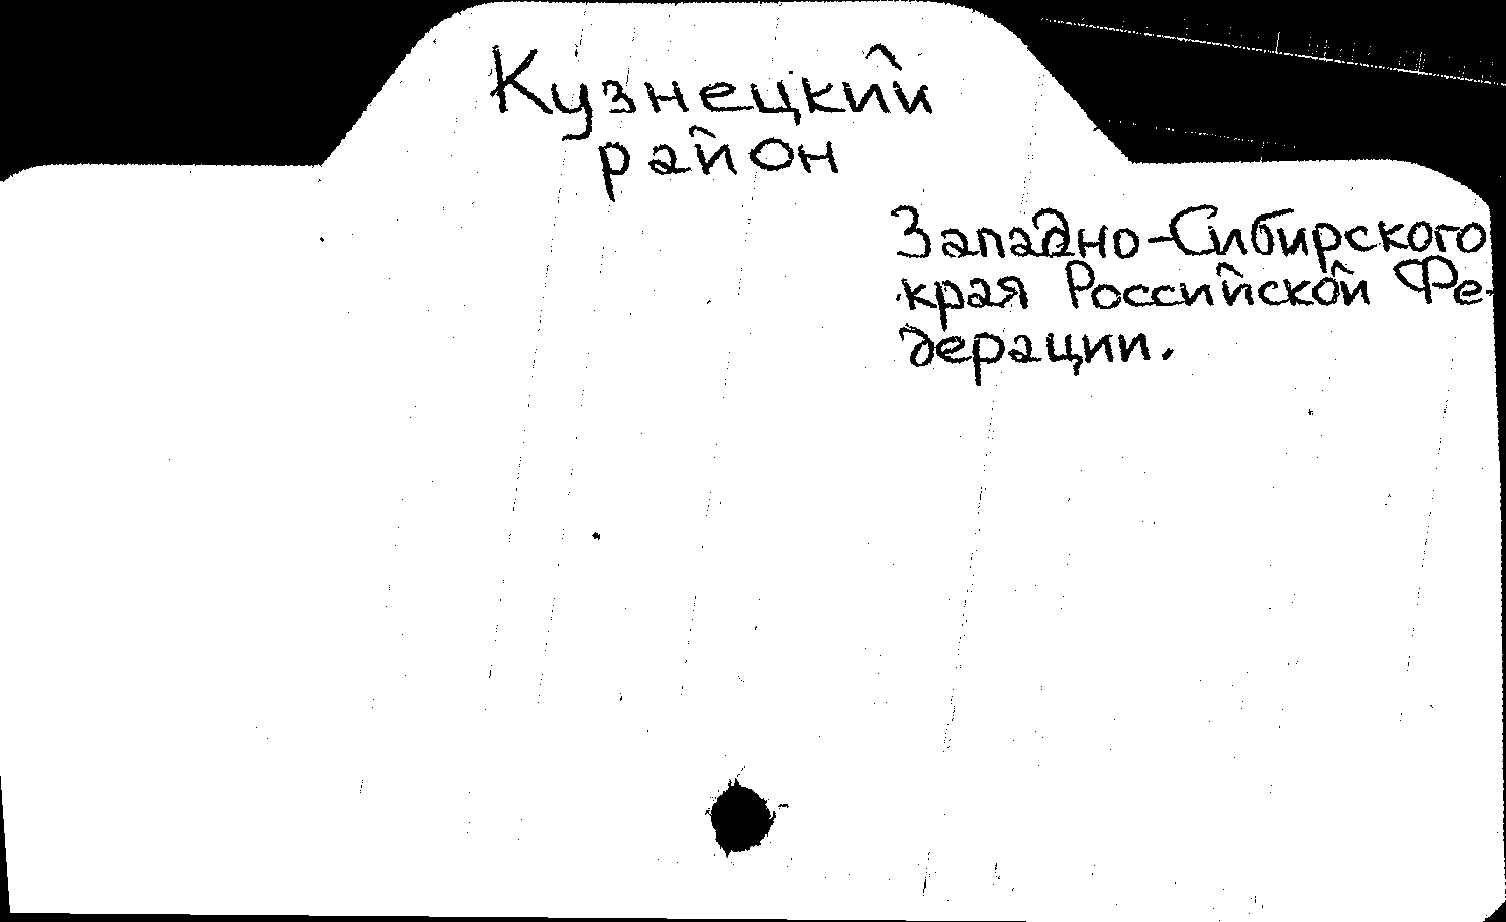 Кузнецкий
район
Западно-Сибирского
края Российской Фе-
дерации.